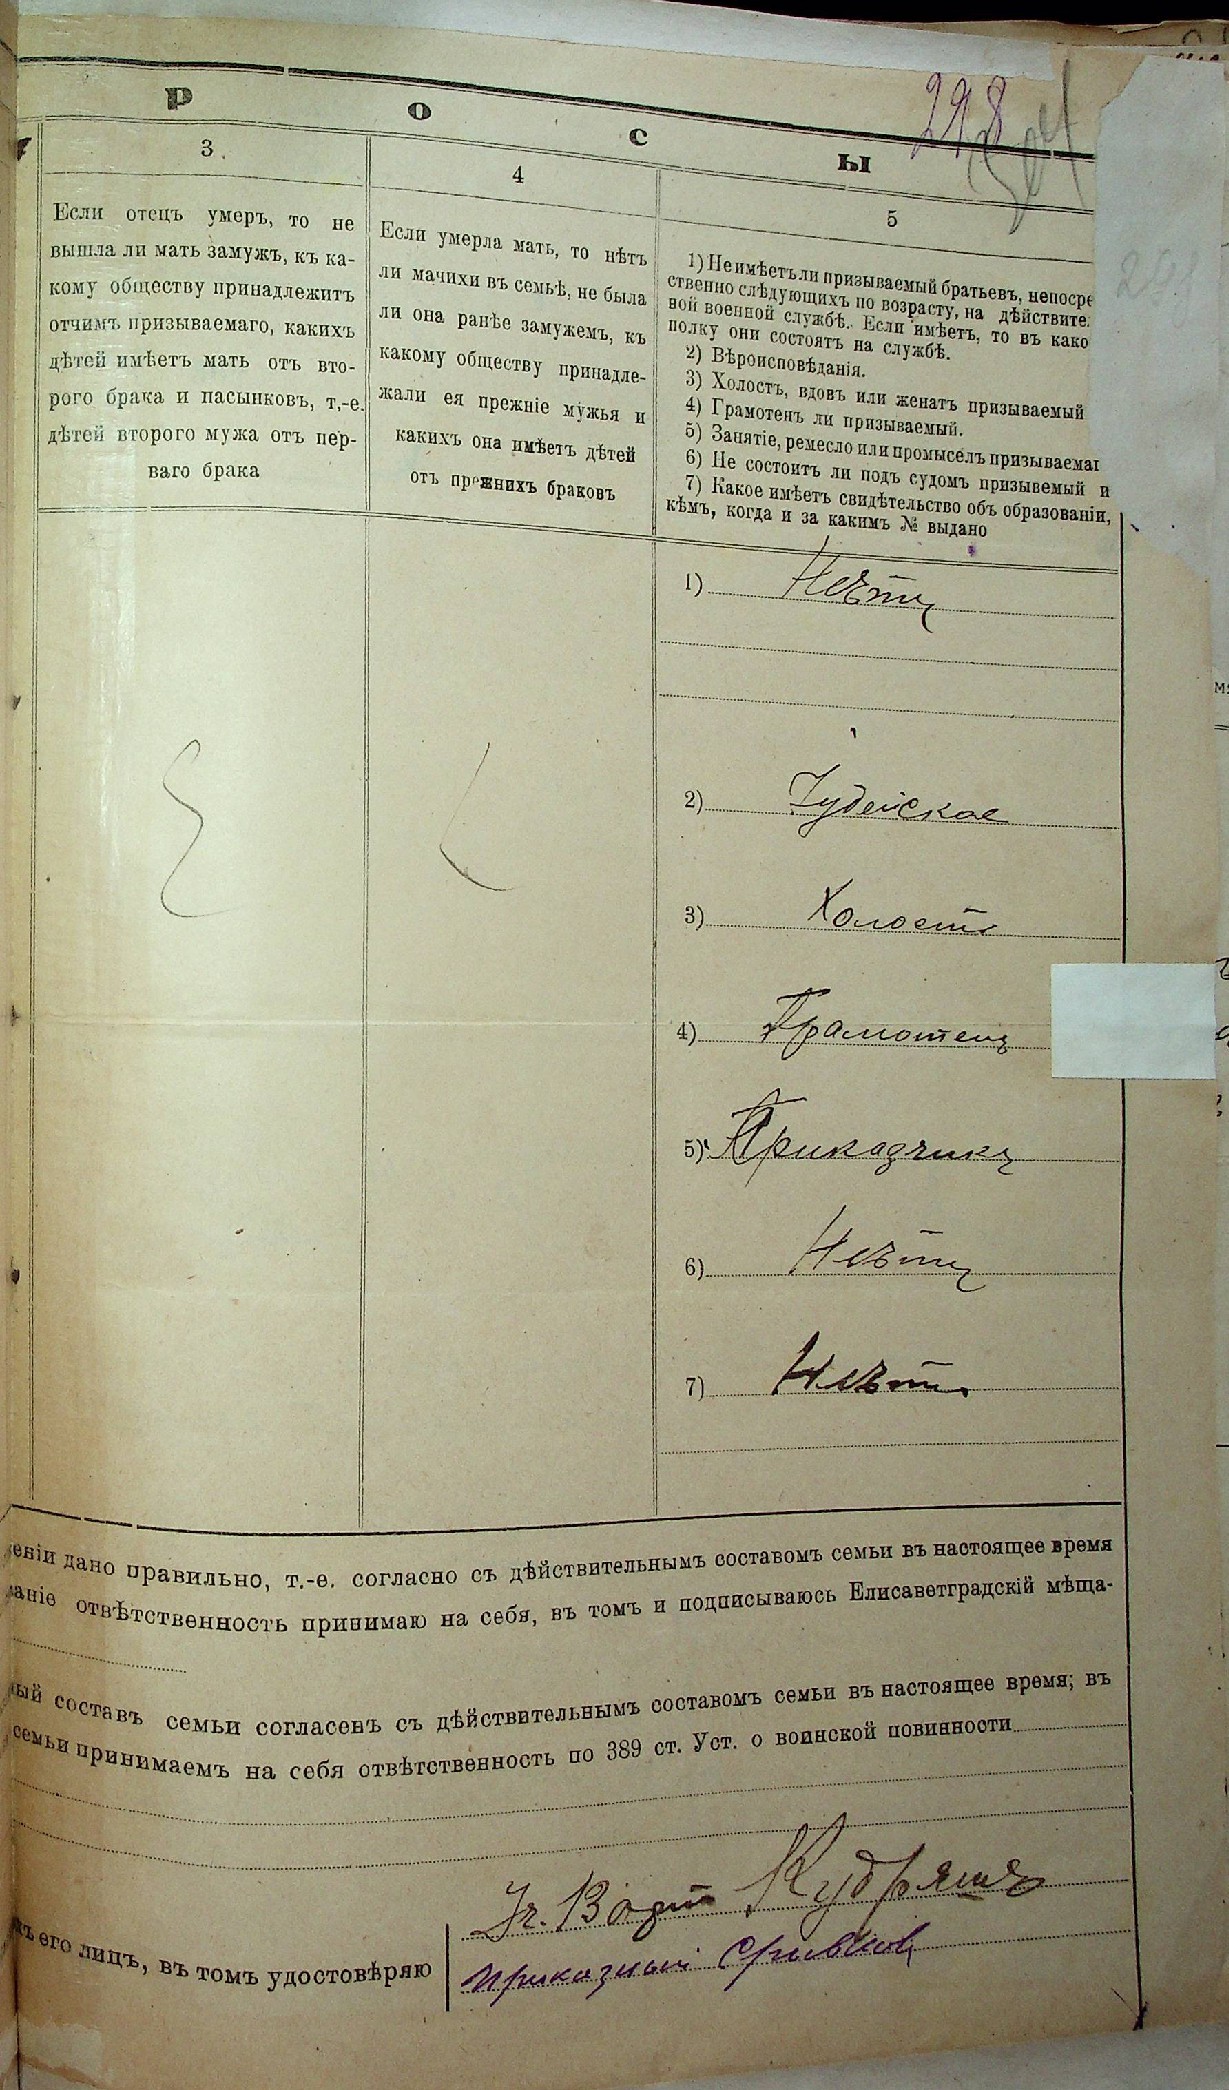 298
Р О С Ы
3
Если отецъ умеръ, то не
вышла ли мать замужъ, къ ка-
кому обществу принадлежитъ
отчимъ призываемаго, какихъ
дѣтей имѣетъ мать отъ вто-
рого брака и пасынковъ, т,-е.
дѣтей второго мужа отъ пер-
ваго брака
4
Если умерла мать, то нѣтъ
ли мачихи въ семьѣ, не была
ли она ранѣе замужемъ, къ
какому обществу принадле-
жали ея прежніе мужья и
какихъ она имѣетъ дѣтей
отъ прежнихъ браковъ
5
1) Не имѣетъ ли призываемый братьевъ, непосре
ственно слѣдующихъ по возрасту, на дѣйствите
ной военной службѣ. Если имѣетъ, то въ како
полку они состоятъ на службѣ.
2) Вѣроисповѣданія.
3) Холостъ, вдовъ или женатъ призываемый
4) Грамотенъ ли призываемый.
5) Занятіе, ремесло или промыселъ призываемаг
6) Не состоитъ ли подъ судомъ призывемый и
7) Какое имѣетъ свидѣтельство объ образованіи,
кѣмъ, когда и за какимъ № выдано
1) Нѣтъ
2) Іудейское
3) Холостъ
4) Грамотенъ
5) Приказчикъ
6) Нѣтъ
7) Нѣтъ
еніи дано правильно, т.-е. согласно съ дѣйствительнымъ составомъ семьи въ настоящее время
аніе отвѣтственность принимаю на себя, въ томъ и подписываюсь Елисаветградскій мѣща-
ый составъ семьи согласенъ съ дѣйствительнымъ составомъ семьи въ настоящее время; въ
семьи принимаемъ на себя отвѣтственность по 389 ст. Уст. о воинской повинности
Кудряшъ
ъ его лицъ, въ томъ удостовѣряю